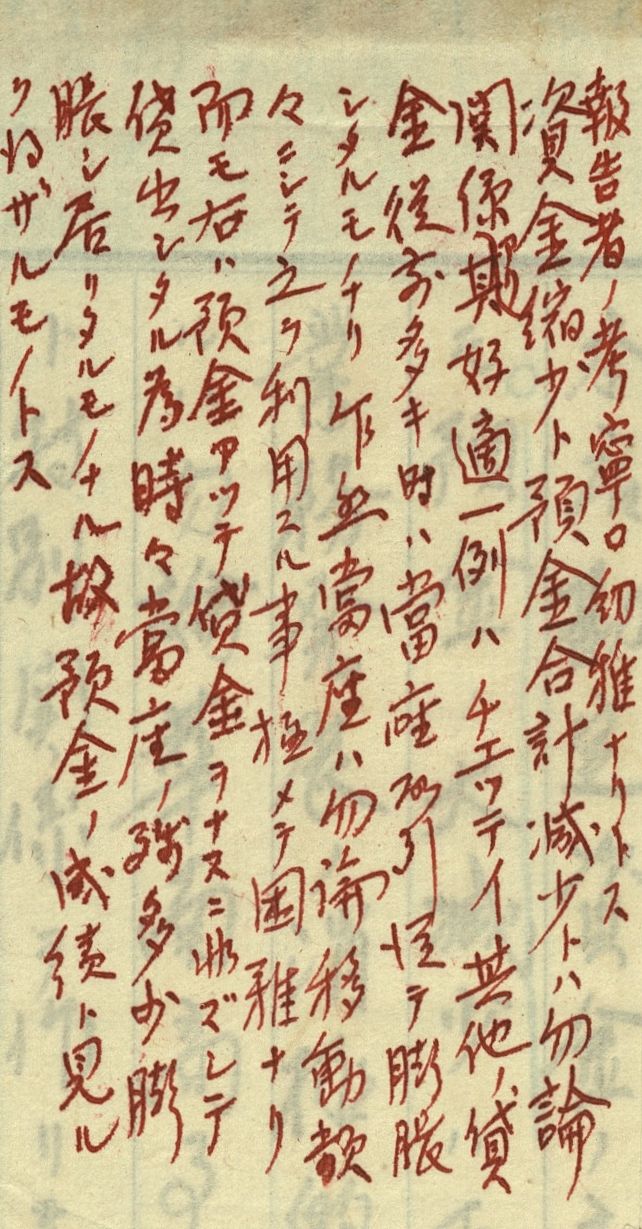 報告者ノ考寧ロ幼雅ナリトス
資金縮少ト預金合計減少トハ勿論
関係其好適一例ハチエッテイ其他ノ貸
金従前多キ時ハ當座取引従テ膨脹
シタルモノナリ乍然當座ハ勿論移動頻
々ニシテ之ヲ利用スル事極メテ困雅ナリ
而モ右ハ預金アッテ貸金ヲナスニ非ズシテ
貸出シタル為時々當座ノ残多少膨
脹シ居リタルモノナル故預金ノ減績ト見ル
ヲ得ザルモノトス